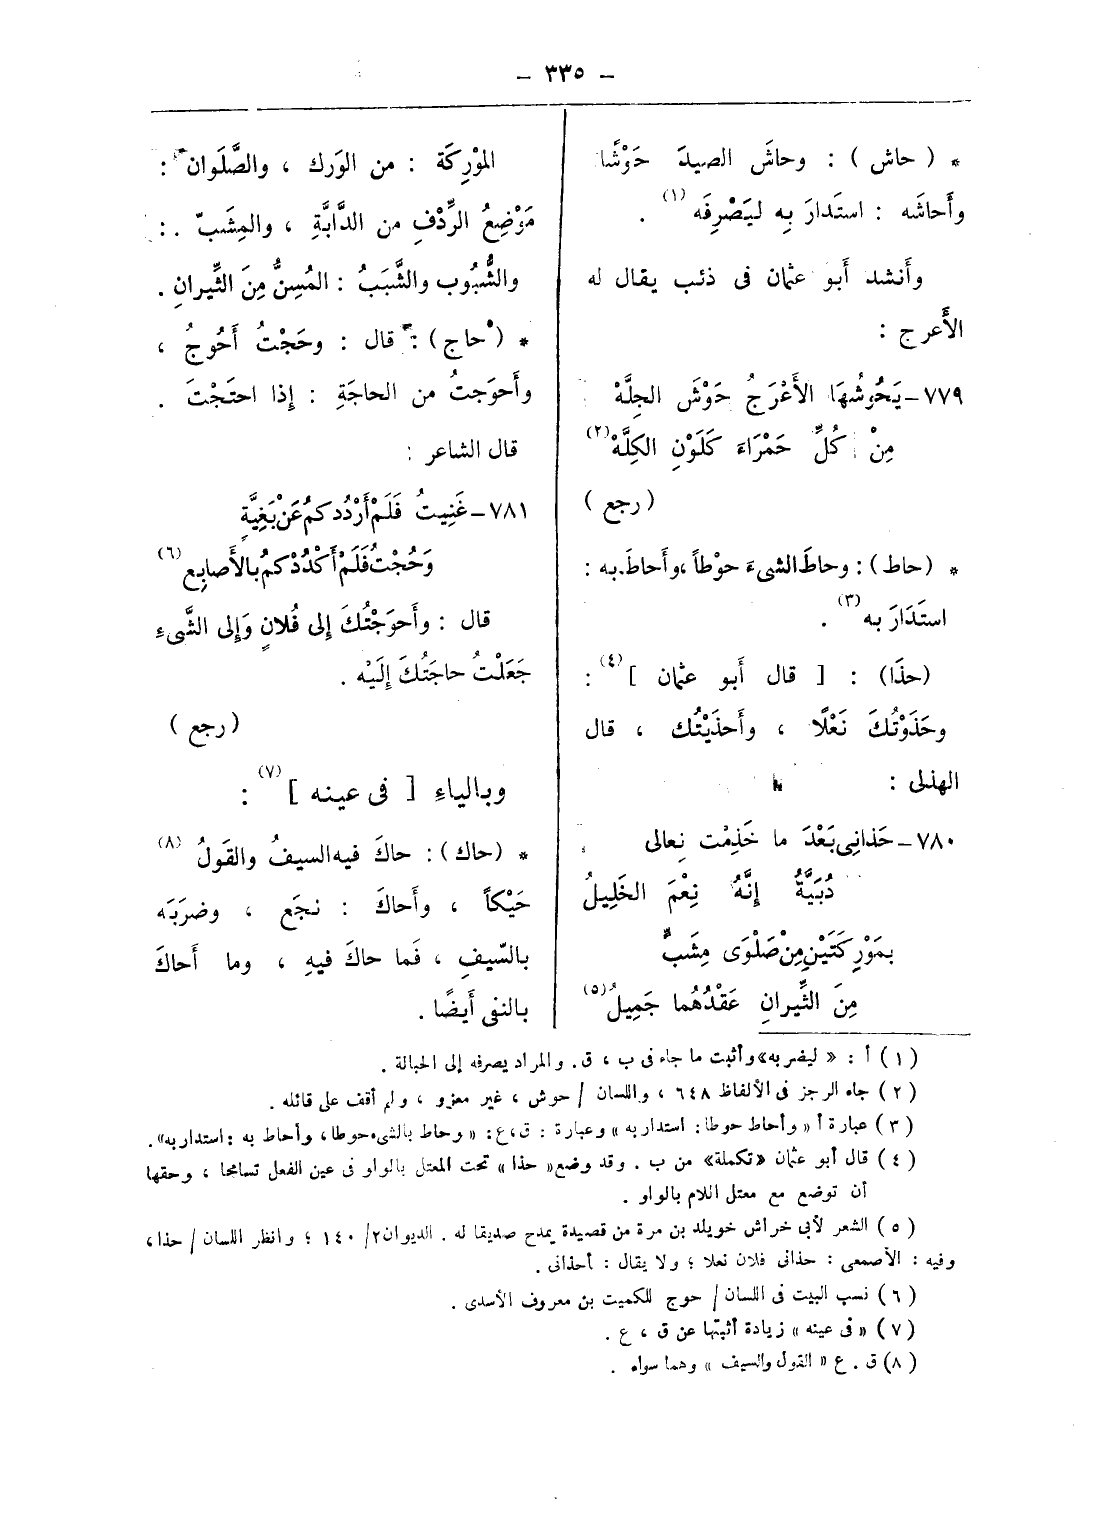 – ٣٣٥ –
* ( حاش ) : وحاشَ الصيدَ حَوْشًا
وأَحاشَه : استَدارَ بِه ليَصْرِفَه (١) .
وأَنشد أَبو عثمان فى ذئب يقال له
الأَعرج :
٧٧٩ – يَحُوشُهَا الأَعْرَجُ حَوْشَ الجِلَّهْ
مِنْ كُلِّ حَمْرَاءَ كَلَوْنِ الكِلَّهْ (٢)
( رجع )
* (حاط ) : وحاطَ الشىءَ حوْطاً ، وأَحاطَ به :
استَدَارَ به (٣) .
(حذَا) : [ قال أَبو عثمان ] (٤) :
وحَذَوْتُكَ نَعْلًا ، وأَحذَيْتُك ، قال
الهذلى :
٧٨٠ – حَذانِى بَعْدَ ما خَذِمْت نِعالى
دُبَيَّةُ إِنَّهُ نِعْمَ الخَلِيلُ
بمَوْرِكَتَيْنِ مِنْ صَلَوَى مِشَبٍّ
مِنَ الثِّيرانِ عَقْدُهُما جَمِيلُ (٥)
المَوْرِكَة : من الوَرِك ، والصَّلَوان :
مَوْضِعُ الرِّدْفِ من الدَّابَّةِ ، والمِشَبّ :
والشُّبُوب والشَّبَبُ : المُسِنُّ مِنَ الثِّيرانِ .
* ( حاج ) : قال : وحَجْتُ أَحُوجُ ،
وأَحوَجتُ من الحاجَةِ : إِذا احتَجْتَ .
قال الشاعر :
٧٨١ – غَنِيتُ فَلَمْ أَرْدُدكمُ عَنْ بَغِيَّةٍ
وَحُجْتُ فَلَمْ أَكْدُدْكمُ بالأَصابِعِ (٦)
قال : وأَحوَجْتُكَ إِلى فُلانٍ وَإِلى الشَّىءِ
جَعَلْتُ حاجَتُكَ إِلَيْه .
( رجع )
وبالياءِ [ فى عينه ] (٧) :
* (حاك ) : حاكَ فيه السيفُ والقَولُ (٨)
حَيْكاً ، وأَحاكَ : نجَع ، وضرَبَه
بالسّيفِ ، فَما حاكَ فيهِ ، وما أَحاكَ
بالنفى أَيضًا .
( ١ ) أ : « ليضربه» وأثبت ما جاء فى ب ، ق . والمراد يصرفه إلى الحبالة .
( ٢ ) جاء الرجز فى الألفاظ ٦٤٨ ، واللسان / حوش ، غير معزو ، ولم أقف على قائله .
( ٣ ) عبارة أ « وأحاط حوطا : استدار به » وعبارة : ق ، ع : « وحاط بالشىء حوطا ، وأحاط به : استدار به» .
( ٤ ) قال أبو عثمان «تكملة» من ب . وقد وضع « حذا » تحت المعتل بالواو فى عين الفعل تسامحا ، وحقها
أن توضع مع معتل اللام بالواو .
( ٥ ) الشعر لأبى خراش خويلد بن مرة من قصيدة يمدح صديقا له . الديوان ٢/ ١٤٠ ؛ وانظر اللسان / حذا ،
وفيه : الأصمعى : حذانى فلان نعلا ؛ ولا يقال : أحذانى .
( ٦ ) نسب البيت فى اللسان / حوج للكميت بن معروف الأسدى .
( ٧ ) « فى عينه » زيادة أثبتها عن ق ، ع .
( ٨ ) ق . ع « القول والسيف » وهما سواء .